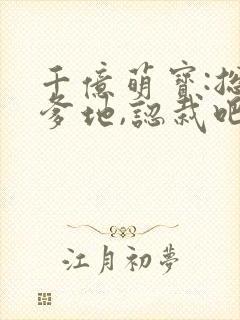 千億萌寶:
爹地,認栽吧
江月初夢